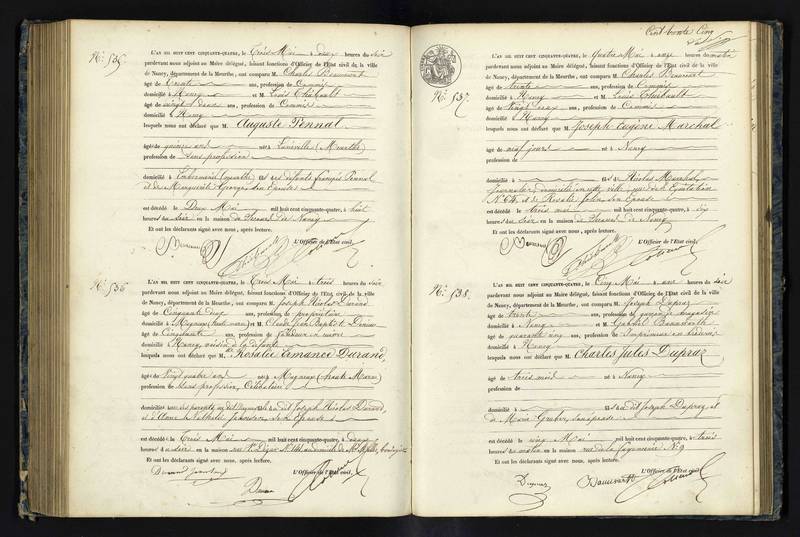 No. 535.
L'AN MIL HUIT CENT CINQUANTE-QUATRE, le Trois Mai à deux heures du soir
pardevant nous adjoint au Maire délégué, faisant fonctions d'Officier de l'Etat civil de la ville
de Nancy, département de la Meurthe, ont comparu M. Charles
âgé de trente ans, profession de Commis
domicilié à Nancy et M. Louis Thiébault
âgé de vingt deux ans, profession de Commis
domicilié à Nancy
lesquels nous ont déclaré que M. Auguste Pennal
âgé de quinze ans né à Lunéville (Meurthe)
profession de sans profession
domicilié à (Meurthe) fils de défunts françois Pennal
et de Marguerite Georges son Epouse
est décédé le Deux Mai mil huit cent cinquante-quatre, à huit
heures du soir en la maison de Secours de Nancy
Et ont les déclarants signé avec nous, après lecture.
L'Officier de l'Etat civil,
No. 536
L'AN MIL HUIT CENT CINQUANTE-QUATRE, le Trois Mai à trois heures du soir
pardevant nous adjoint au Maire délégué, faisant fonctions d'Officier de l'Etat civil de la ville
de Nancy, département de la Meurthe, ont comparu M. Joseph Nicolas Durand
âgé de Cinquante deux ans, profession de propriétaire
domicilié à et M. Claude Jean Baptiste
âgé de Cinquante ans, profession de
domicilié à Nancy, voisin de la défunte
lesquels nous ont déclaré que Mlle Rosalie Ermance Durand,
âgée de vingt quatre ans née à (haute Marne)
profession de sans profession, Célibataire
domiciliée fille du dit Joseph Nicolas Durand
et d'Anne son Epouse
est décédée le Trois Mai mil huit cent cinquante-quatre, à
heures du soir en la maison rue St
Et ont les déclarants signé avec nous, après lecture.
L'Officier de l'Etat civil,
Cent trente Cinq
No. 537.
L'AN MIL HUIT CENT CINQUANTE-QUATRE, le Quatre Mai à onze heures du matin
pardevant nous adjoint au Maire délégué, faisant fonctions d'Officier de l'Etat civil de la ville
de Nancy, département de la Meurthe, ont comparu M. Charles
âgé de trente ans, profession de Commis
domicilié à Nancy et M. Louis Thiébault
âgé de Vingt deux ans, profession de Commis
domicilié à Nancy
lesquels nous ont déclaré que M. Joseph Eugène Marchal
âgé de neuf jours né à Nancy
profession de
domicilié à fils de Nicolas Marchal
Journalier, domicilié en cette ville, rue
No 64, et de Rosalie son Epouse
est décédé le trois mai mil huit cent cinquante-quatre, à dix
heures du soir en la maison de Secours de Nancy
Et ont les déclarants signé avec nous, après lecture.
L'Officier de l'Etat civil,
No. 538.
L'AN MIL HUIT CENT CINQUANTE-QUATRE, le Cinq Mai à heures du soir
pardevant nous adjoint au Maire délégué, faisant fonctions d'Officier de l'Etat civil de la ville
de Nancy, département de la Meurthe, ont comparu M. Joseph Dupraz
âgé de trente ans, profession de garçon de magasin
domicilié à Nancy et M. Gabriel
âgé de quarante ans, profession de Imprimeur
domicilié à Nancy
lesquels nous ont déclaré que M. Charles Jules Dupraz
âgé de trois mois né à Nancy
profession de
domicilié à fils du dit Joseph Dupraz, et
de Marie Gruber, son épouse
est décédé le cinq Mai mil huit cent cinquante-quatre, à trois
heures du matin en la maison rue de la No 9
Et ont les déclarants signé avec nous, après lecture.
L'Officier de l'Etat civil,
Dupraz